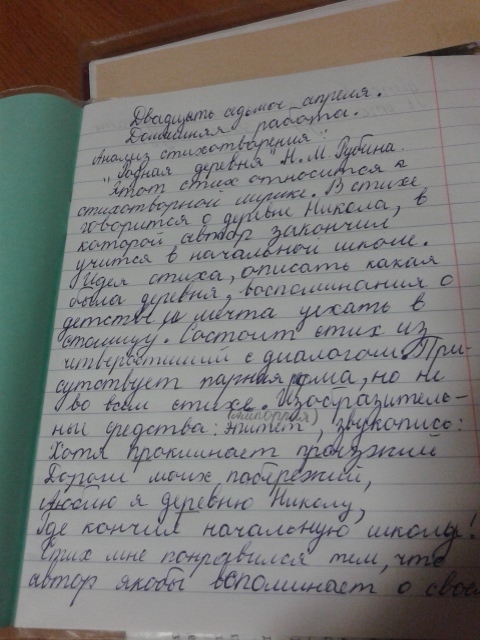 Двадцать седьмое апреля.
Домашняя работа.
Анализ стихотворения
"Родная деревня" Н. М. Рубина.
Этот стих относится к
стихотворной лирике. В стихе
говорится о деревне Никола, в
которой автор закончил
учится в начальной школе.
Идея стиха, описать какая
была деревня, воспоминания о
детстве и мечта уехать в
столицу. Состоит стих из
четверостиший с диалогом. При-
сутствует парная рифма, но не
во всем стихе. Изобразитель-
ные средства: эпитет, звукопись:
Хотя проклинает проезжий
Дороги моих побережий,
Люблю я деревню Николу,
Где кончил начальную школу!
Стих мне понравился тем, что
автор якобы вспоминает о свое